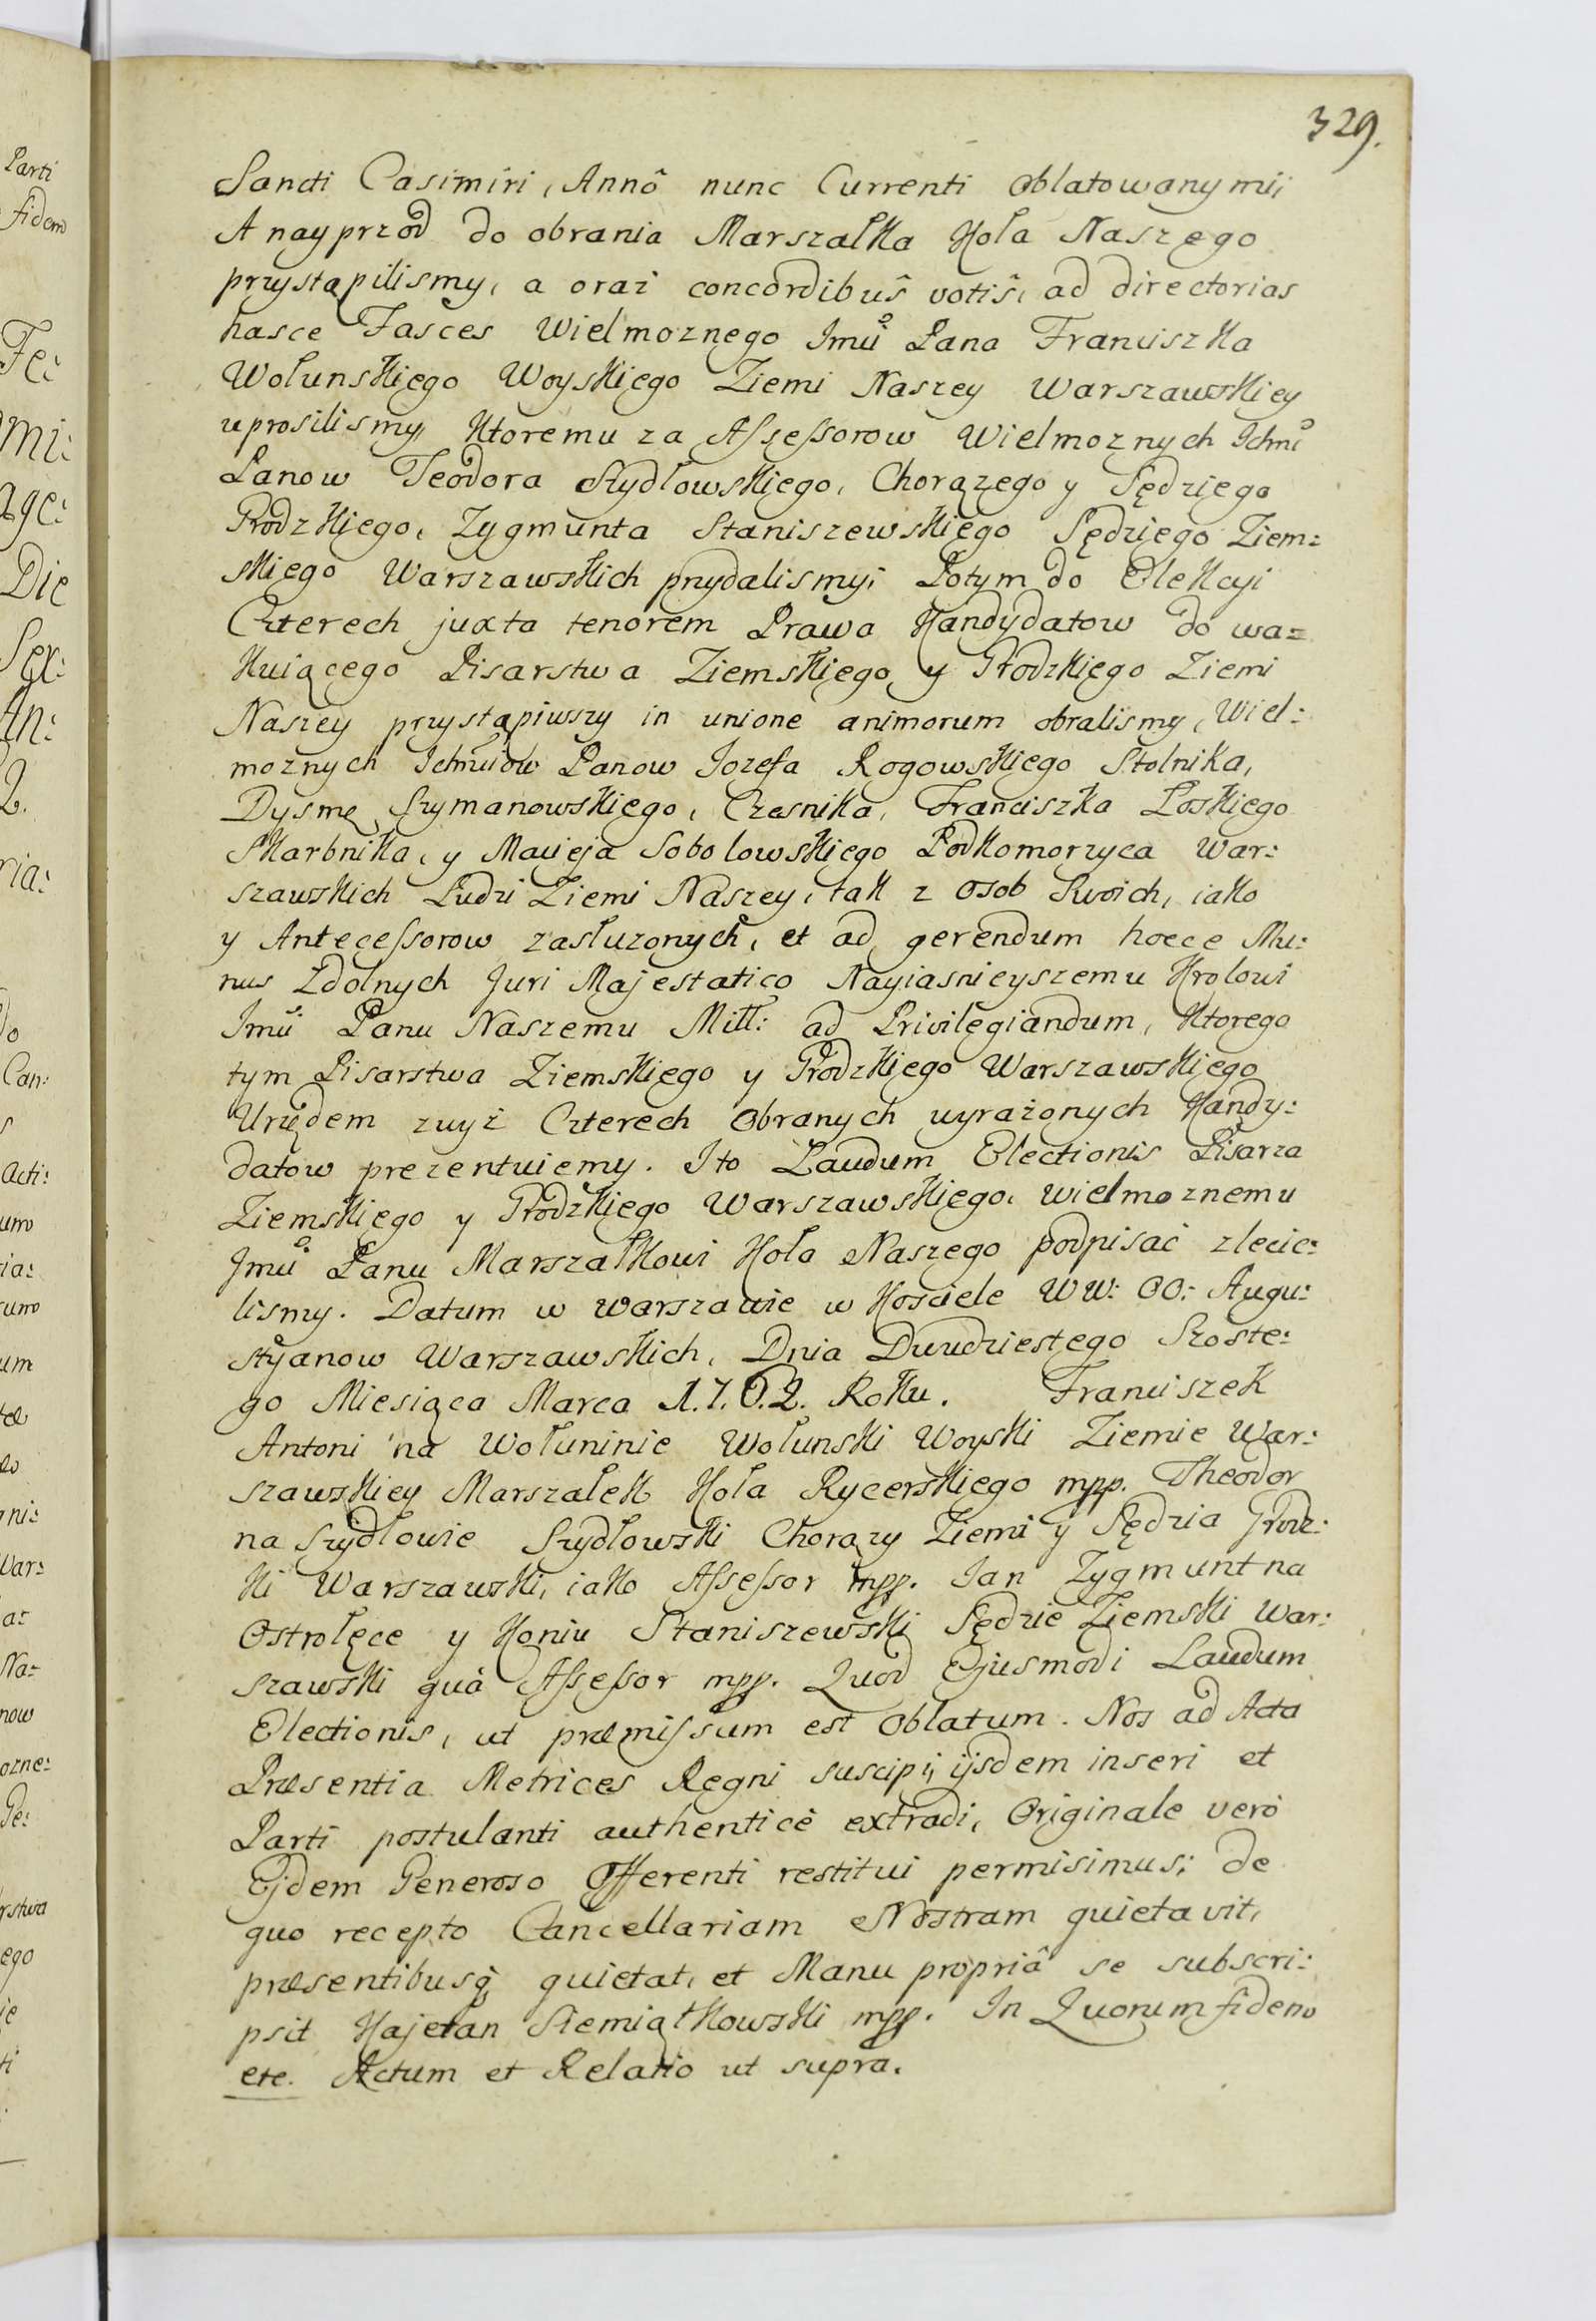 329.
Sancti Casimiri, Annô nunc Currenti oblatowanymi;
A nayprzod do obrania Marszałka Koła Naszego
przystąpilismy, a oraz concordibus votis, ad directorias
hasce Fasces Wielmoznego Jmci Pana Franciszka
Wołunskiego Woyskiego Ziemi Naszey Warszawskiey
uprosilismy, Ktoremu za Assessorow Wielmoznych Ichmci
Panow Teodora Szydłowskiego, Chorązego y Sędziego
Grodzkiego, Zygmunta Staniszewskiego Sędziego Ziem:
skiego Warszawskich przydalismy; Potym do Elekcyi
Czterech juxta tenorem Prawa Kandydatow do wa=
kuiącego Pisarstwa Ziemskiego y Grodzkiego Ziemi
Naszey przystąpiwszy in unione animorum obralismy, Wiel:
moznych Ichmciow Panow Jozefa Rogowskiego Stolnika,
Dysmę Szymanowskiego, Czesnika, Franciszka Łoskiego
Skarbnika, y Macieja Sobolowskiego Podkomorzyca War:
szawskich Ludzi Ziemi Naszey, tak z Osob Swoich, iako
y Antecessorow zasłuzonych, et ad gerendum hocce Mu:
nus Zdolnych Juri Majestatico Nayiasnieyszemu Krolowi
Jmci Panu Naszemu Mił: ad Privilegiandum, Ktorego
tym Pisarstwa Ziemskiego y Grodzkiego Warszawskiego
Urzędem zwyż Czterech Obranych wyrażonych Kandy:
datow prezentuiemy. I to Laudum Electionis Pisarza
Ziemskiego y Grodzkiego Warszawskiego, wielmoznemu
Jmci Panu Marszałkowi Koła Naszego podpisać zlecie:
lismy. Datum w Warszawie w Kosciele WW: OO: Augu:
styanow Warszawskich, Dnia Dwudziestego Szoste:
go Miesiąca Marca 1.7.6.2. Roku. Franciszek
Antoni na Wołuninie Wołunski Woyski Ziemie War:
szawskiey Marszałek Koła Rycerskiego mpp. Theodor
na Szydłowie Szydłowski Chorązy Ziemi y Sędzia Grodz:
ki Warszawski, iako Assessor mpp. Jan Zygmunt na
Ostrołęce y Koniu Staniszewski Sędzie Ziemski War:
szawski quà Assessor mpp. Quod Ejusmodi Laudum
Electionis, ut præmissum est Oblatum. Nos ad Acta
Præsentia Metrices Regni suscipi, ijsdem inseri et
Parti postulanti authenticè extradi, Originale verò
Ejdem Generoso Offerenti restitui permisimus; de
quo recepto Cancellariam Nostram quietavit,
præsentibusq; quietat, et Manu propriâ se subscri:
psit Kajetan Siemiątkowski mpp. In Quorum fidem
etc. Actum et Relatio ut supra.